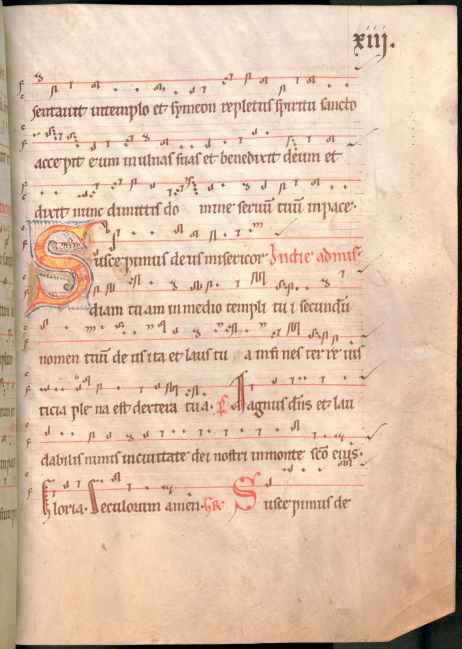 xiij.
sentavit in templo et symeon repletus spiritu sancto
accepit eum in ulnas suas et benedixit deum et
dixit nunc dimittis do mine servum tuum in pace.
Suscepimus deus misericor In die ad mis
diam tuam in medio templi tu i secundū
nomen tuū de us ita et laus tu a in fi nes ter re ius
ticia ple na est dextera tua. Magnus dn̄s et lau
dabilis nimis in civitate dei nostri in monte scō eius.
Gloria. Seculorum amen. Suscepimus de